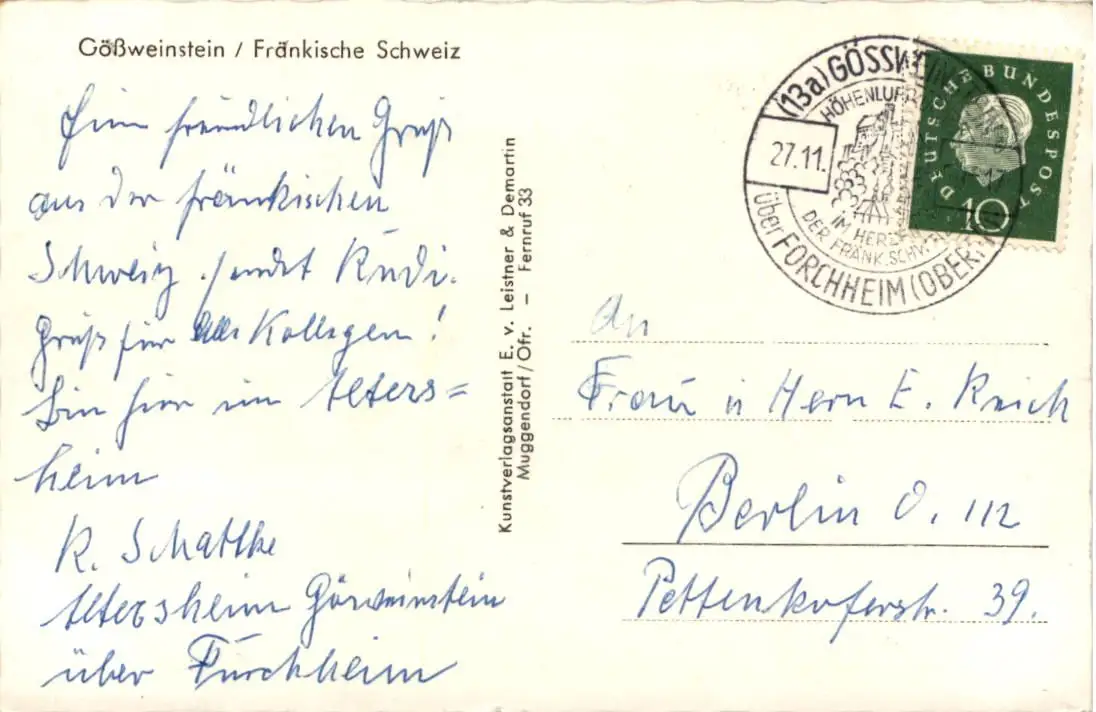 Gößweinstein / Fränkische Schweiz
Einen freundlichen Gruß
aus der fränkischen
Schweiz sendet Rudi.
Grüße für alle Kollegen!
Bin hier im Alters=
heim
R. Schattke
Altersheim Gösweinstein
über Furchheim
Kunstverlagsanstalt E. v. Leistner & Demartin
Muggendorf/Ofr. – Fernruf 33
(13a) GÖSSWEIN
HÖHENLUF
27.11.
IM HERZ
DER FRÄNK. SCHW.
über FORCHHEIM (OBER
DEUTSCHE BUNDESPOST
10
An
Frau u Herrn E. Reich
Berlin O. 112
Pettenkoferstr. 39.